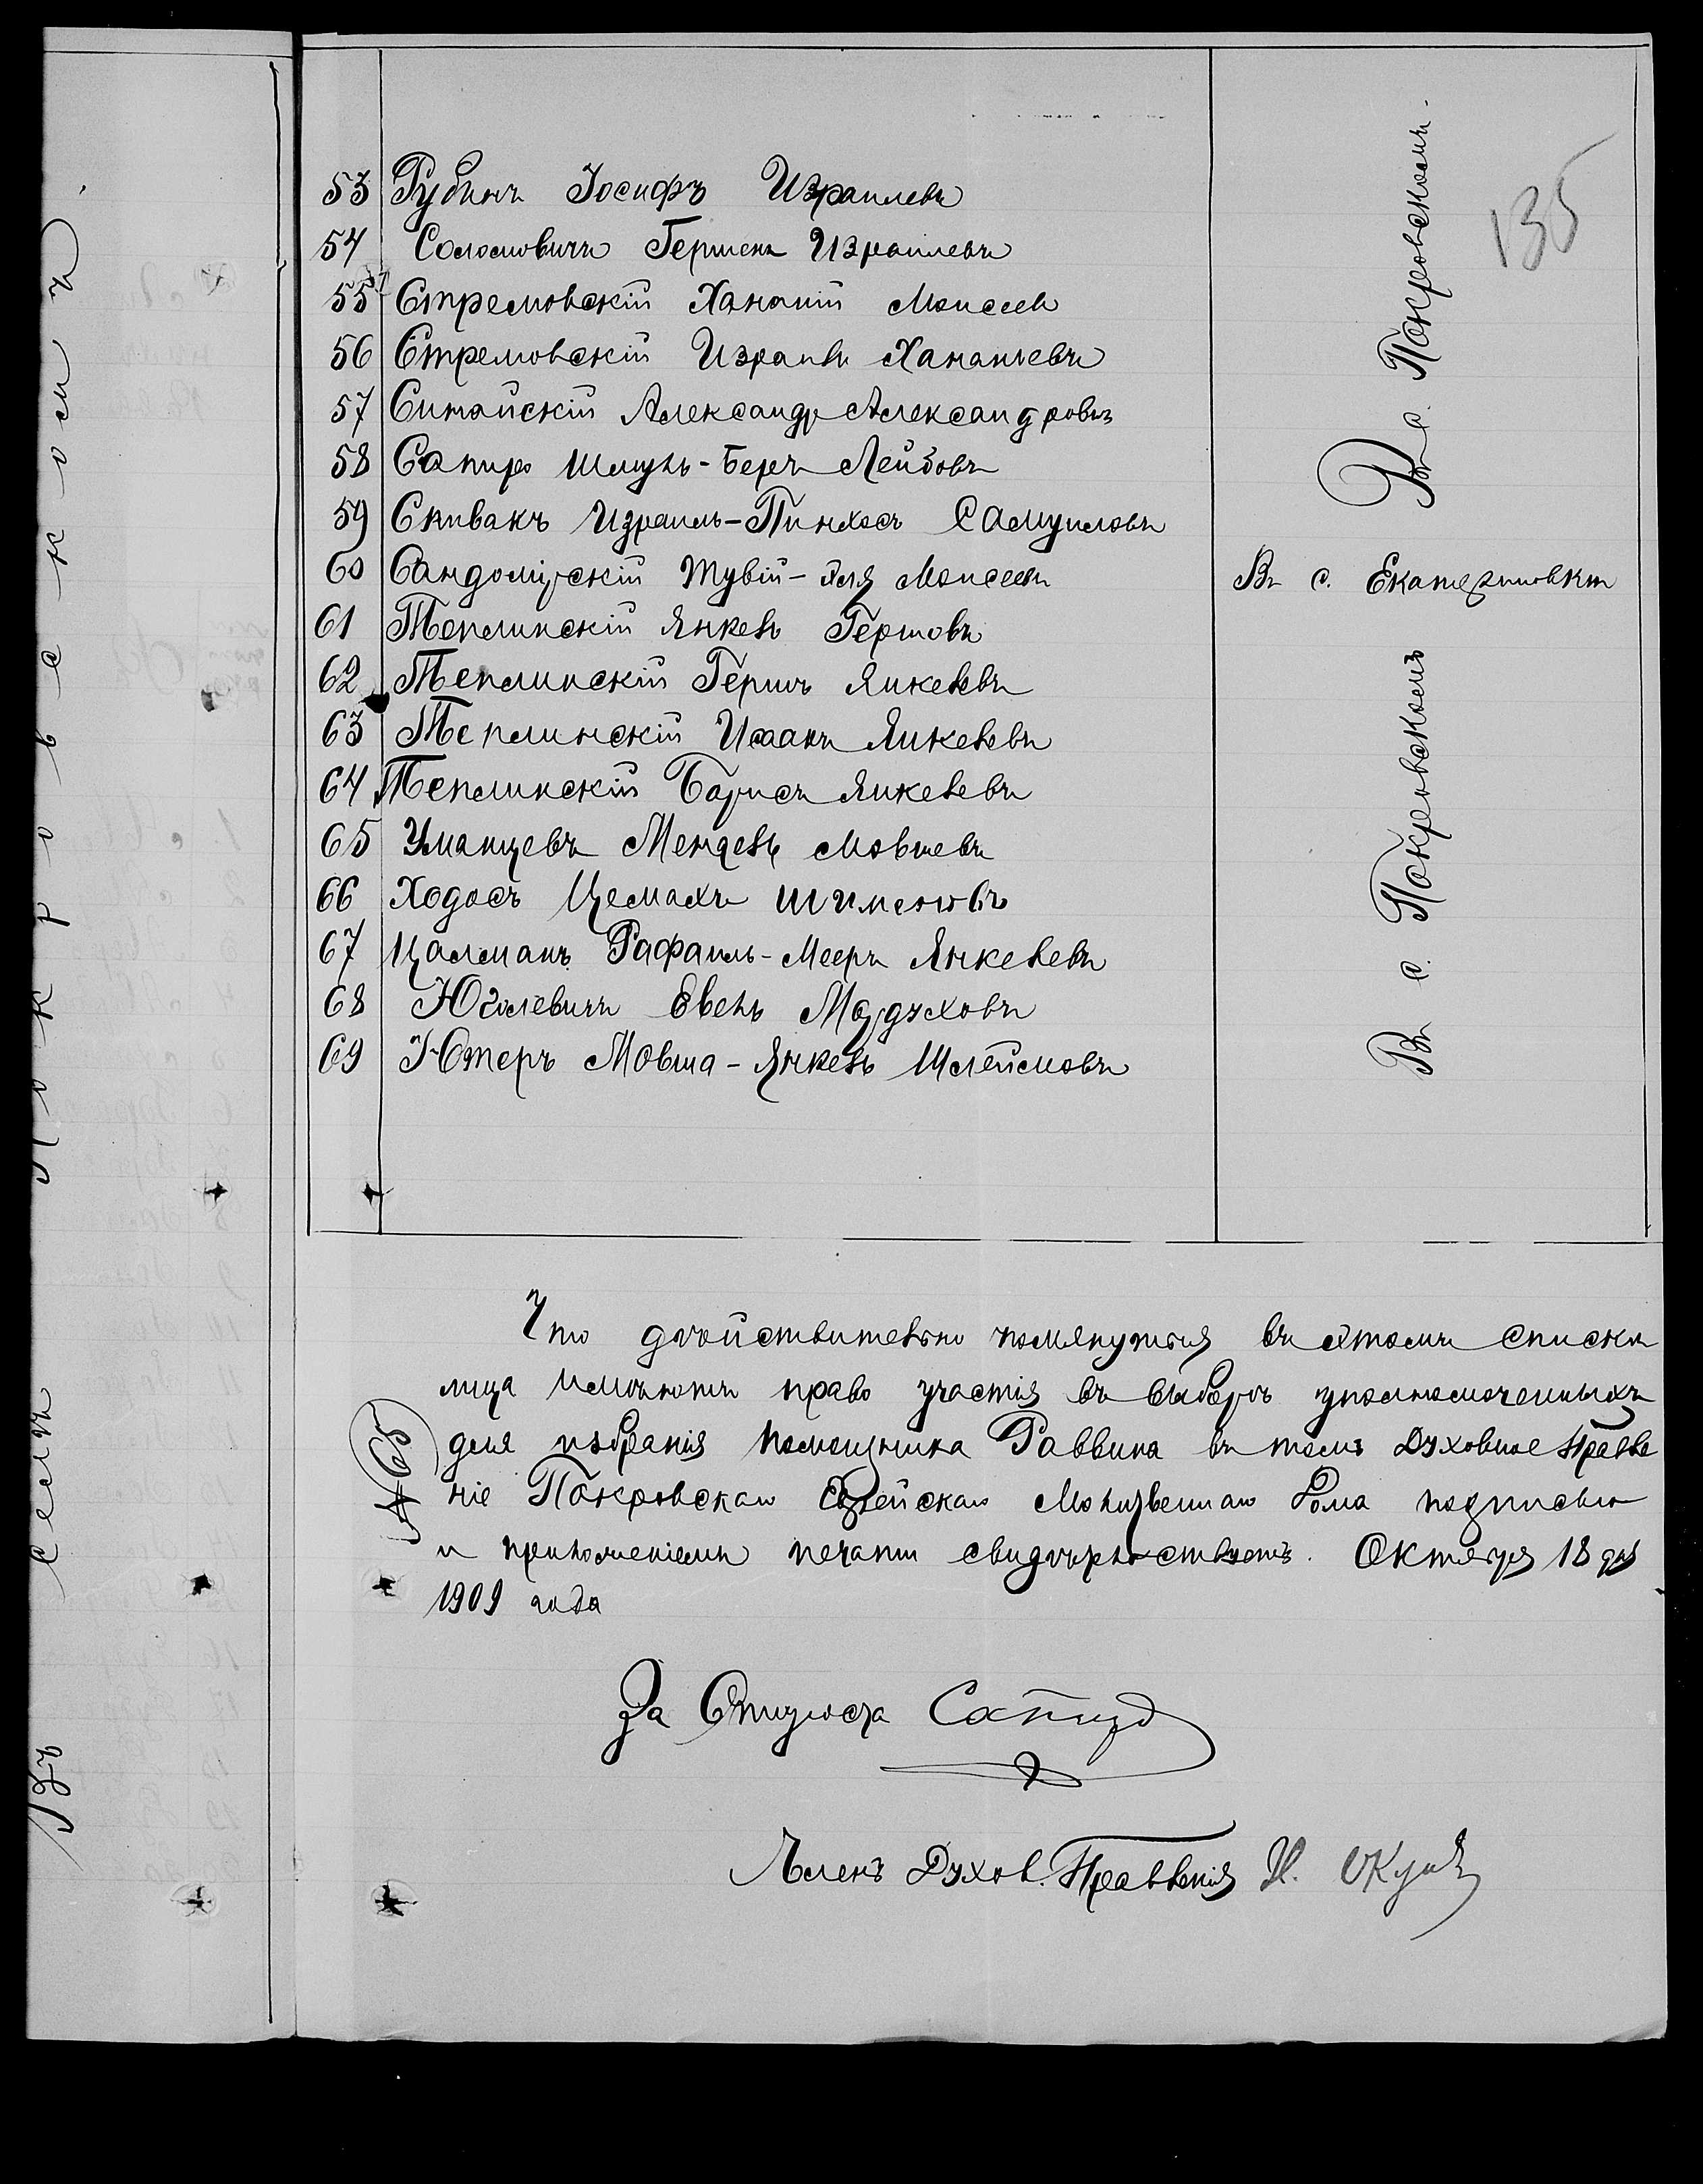 135
53 Рубинъ Іосифъ Израилевъ
54 Соломовичъ Гершенъ Израилевъ
55 Стремовскій Хананій Моисеев
56 Стремовскій Израиль Хананіевъ
57 Синайскій Александръ Александровъ
58 Сапиро Шмуль-Беръ Лейбовъ
59 Спивакъ Израиль-Пинхосъ Самуиловъ
60 Сандомірскій Тувій-Эля Моисеевъ
61 Теплинскій Янкель Гершовъ
62 Теплинскій Гершъ Янкелевъ
63 Теплинскій Исаакъ Янкелевъ
64 Теплинскій Борисъ Янкелевъ
65 Уманцевъ Мендель Мовшевъ
66 Ходосъ Цемахъ Шименовъ
67 Цалманъ Рафаиль-Мееръ Янкелевъ
68 Юголевичъ Евель Мордуховъ
69 Ютеръ Мовша-Янкель Шлеймовъ
Въ с. Покровскомъ.
Въ с. Екатериновкѣ
Въ с. Покровскомъ
Что дѣйствительно помянутыя въ этомъ списке
лица имѣютъ право участія въ выборѣ уполномоченныхъ
для избранія помощника Раввина въ томъ Духовное Правле
ніе Покровскаго Еврейскаго Молитвеннаго Дома подписью
и приложеніемъ печати свидѣтельствуетъ. Октября 18 дня
1909 года
За Сапиро
Членъ Духов. Правленія И. Окунь
Въ Селѣ Покровскомъ.